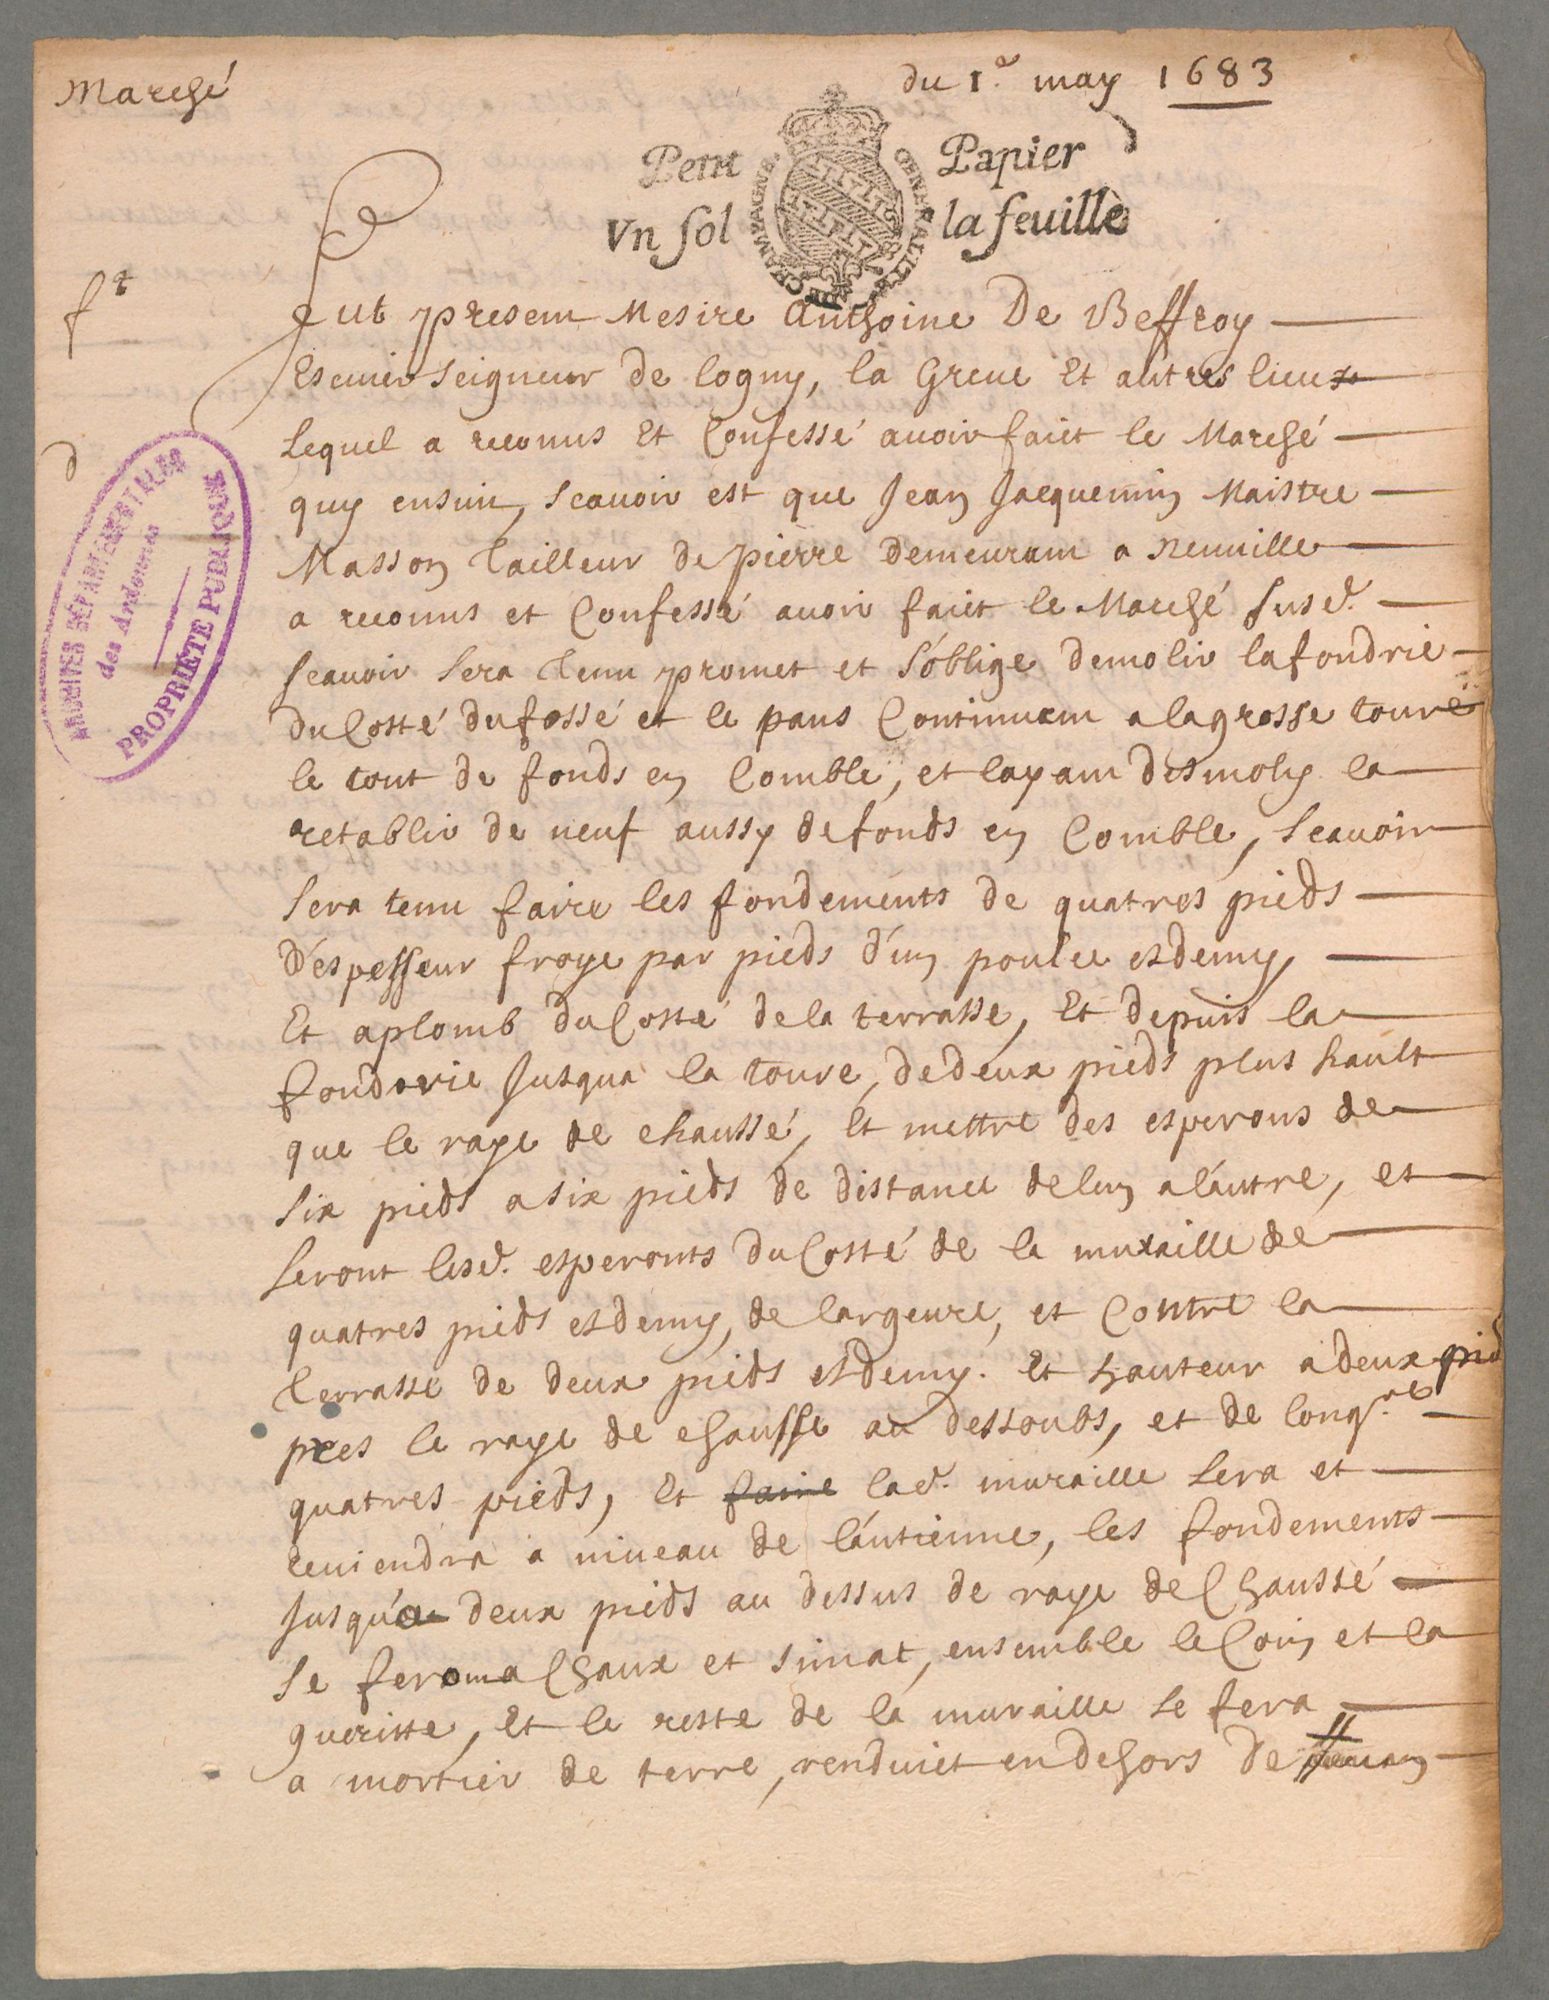 Marché
du 1.er may 1683
Petit Papier
Vn sol la feuille
DE CHAMPAGNE GENERALITÉ
ft
Fut present Mesire Anthoine De Beffroy
Escuier seigneur de logny, la Greue Et autres lieux
Lequel a reconnus Et Confessé auoir faict le Marché
quy ensuit, scauoir est que Jean Jacquemin Maistre
d
Masson Tailleur de pierre demeurant a Neuuille
a reconus et Confessé auoir faict le Marché susd.
scauoir sera tenu promet et s'oblige demolir lafondrie
du Costé dufossé et le pans Continuant alagrosse toure
le tout de fonds en Comble, et layant desmoly la
retablir de neuf aussy defonds en Comble, scauoir
sera tenu faire les fondements de quatres pieds
d'espesseur froye par pieds d'un poulce etdemy
Et aplomb du Costé dela terrasse, Et depuis la
fonderie Jusqua la toure, dedeux pieds plus hault
que le raye de chaussé, Et mettre des esperons de
six pieds asix pieds de distance delun a lautre, et
seront lesd. esperonts du Costé de la muraille de
quatres pieds etdemy, de largeure, et Contre la
terrasse de deux pieds etdemy. Et hauteur adeux pied
pres le raye de chausse au dessoubs, et de longr.
quatres pieds, Et faire lad. muraille sera et
reuiendra a niueau de l'antienne, les fondements
Jusqu'a deux pieds au dessus de raye de Chaussé
se feront a Chaux et simat, ensemble le Coin et la
gueritte, Et le reste de la muraille se fera
a mortier de terre, renduict endehors de
ARCHIVES DÉPARTEMENTALES
des Ardennes
PROPRIÉTÉ PUBLIQUE